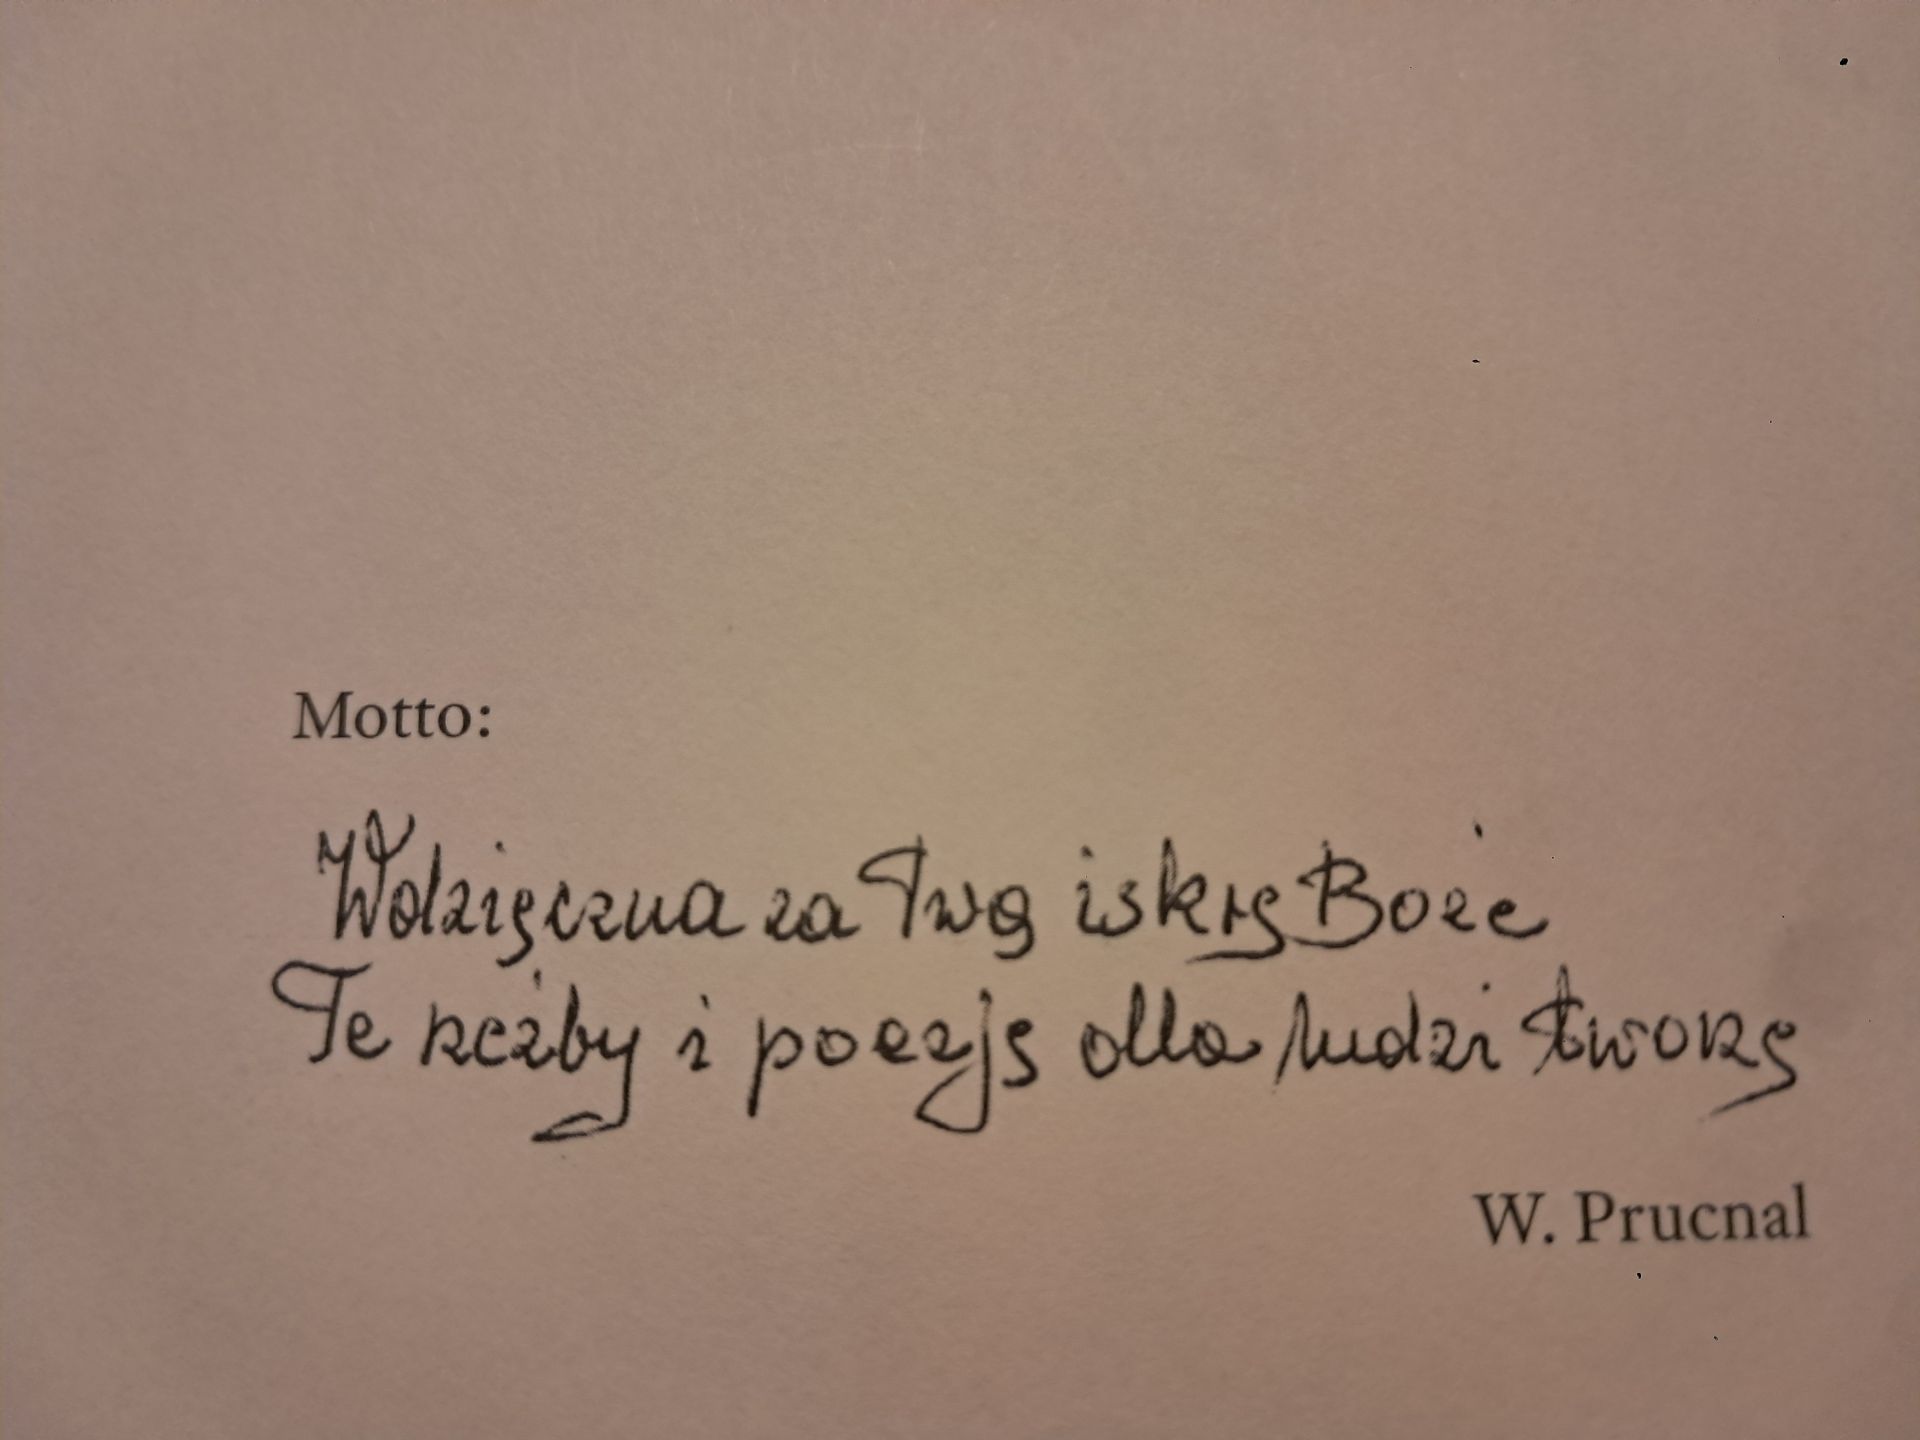 Motto:
Wdzięczna za Twą iskrę Boże
Te rzeźby i poezję dla ludzi tworzę
W. Prucnal